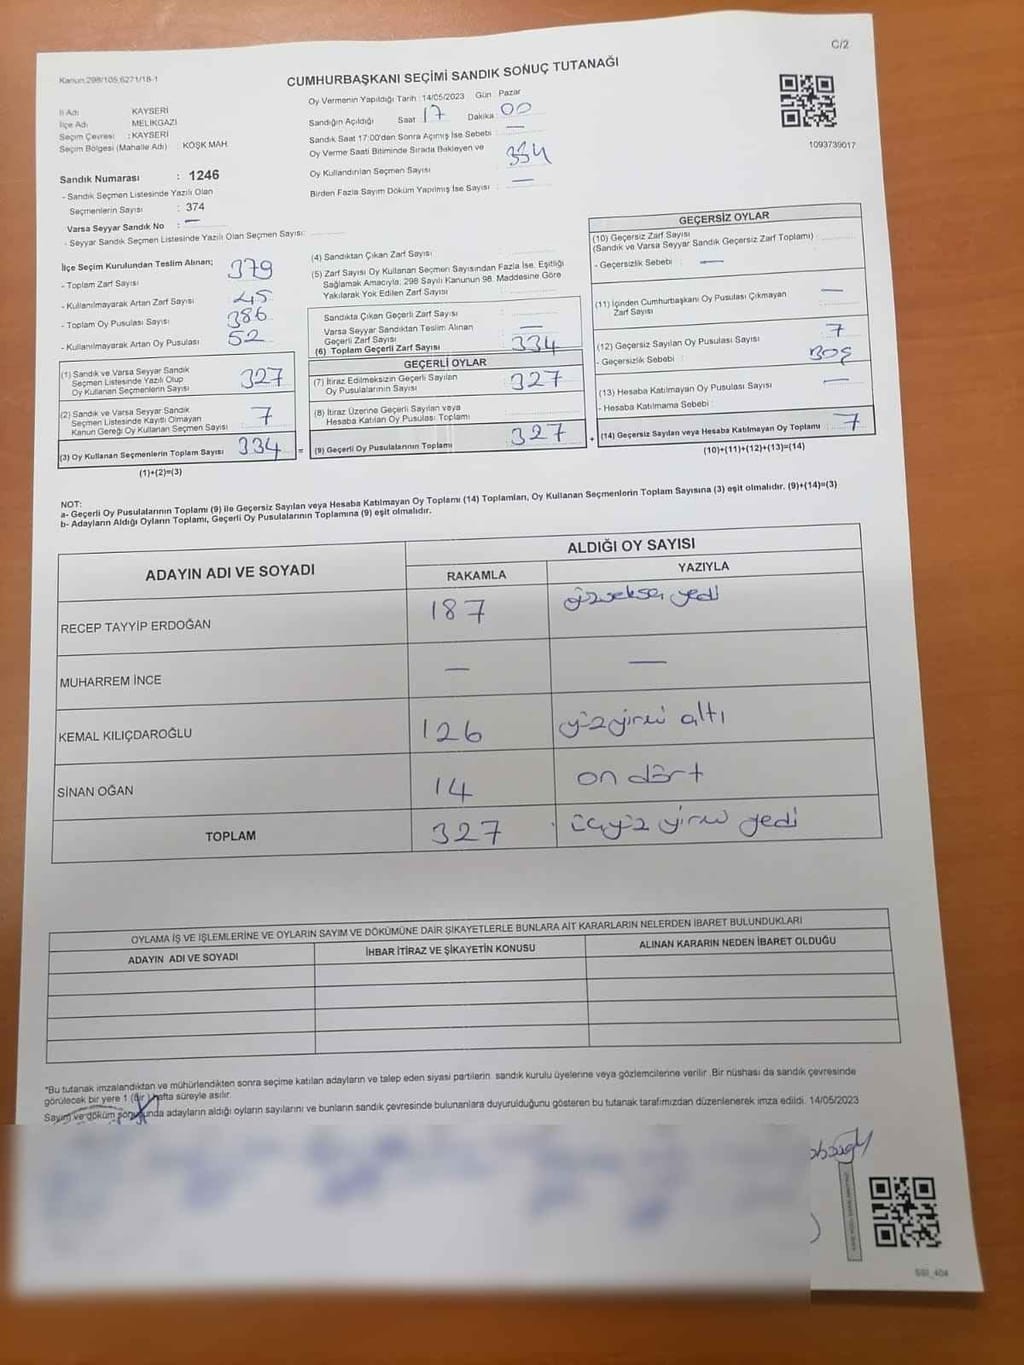 C/2
Kanun:298/105,6271/18-1
CUMHURBAŞKANI SEÇİMİ SANDIK SONUÇ TUTANAĞI
İl Adı: KAYSERİ
İlçe Adı: MELİKGAZİ
Seçim Çevresi : KAYSERİ
Seçim Bölgesi (Mahalle Adı) : KÖŞK MAH.
Oy Vermenin Yapıldığı Tarih : 14/05/2023 Gün : Pazar
Sandığın Açıldığı Saat 17 Dakika : 00
Sandık Saat 17:00'den Sonra Açılmış İse Sebebi : —
Oy Verme Saati Bitiminde Sırada Bekleyen ve
Oy Kullandırılan Seçmen Sayısı : 334
Birden Fazla Sayım Döküm Yapılmış İse Sayısı : —
1093739017
Sandık Numarası : 1246
- Sandık Seçmen Listesinde Yazılı Olan
Seçmenlerin Sayısı : 374
Varsa Seyyar Sandık No : —
- Seyyar Sandık Seçmen Listesinde Yazılı Olan Seçmen Sayısı:
İlçe Seçim Kurulundan Teslim Alınan;
- Toplam Zarf Sayısı 379
- Kullanılmayarak Artan Zarf Sayısı 45
- Toplam Oy Pusulası Sayısı 386
- Kullanılmayarak Artan Oy Pusulası 52
(1) Sandık ve Varsa Seyyar Sandık
Seçmen Listesinde Yazılı Olup
Oy Kullanan Seçmenlerin Sayısı 327
(2) Sandık ve Varsa Seyyar Sandık
Seçmen Listesinde Kayıtlı Olmayan
Kanun Gereği Oy Kullanan Seçmen Sayısı 7
(3) Oy Kullanan Seçmenlerin Toplam Sayısı 334 =
(1)+(2)=(3)
(4) Sandıktan Çıkan Zarf Sayısı :
(5) Zarf Sayısı Oy Kullanan Seçmen Sayısından Fazla İse, Eşitliği
Sağlamak Amacıyla; 298 Sayılı Kanunun 98. Maddesine Göre
Yakılarak Yok Edilen Zarf Sayısı :
Sandıkta Çıkan Geçerli Zarf Sayısı :
Varsa Seyyar Sandıktan Teslim Alınan
Geçerli Zarf Sayısı : —
(6) Toplam Geçerli Zarf Sayısı : 334
GEÇERLİ OYLAR
(7) İtiraz Edilmeksizin Geçerli Sayılan
Oy Pusulalarının Sayısı : 327
(8) İtiraz Üzerine Geçerli Sayılan veya
Hesaba Katılan Oy Pusulası Toplamı :
(9) Geçerli Oy Pusulalarının Toplamı : 327 +
GEÇERSİZ OYLAR
(10) Geçersiz Zarf Sayısı
(Sandık ve Varsa Seyyar Sandık Geçersiz Zarf Toplamı) :
- Geçersizlik Sebebi : —
(11) İçinden Cumhurbaşkanı Oy Pusulası Çıkmayan
Zarf Sayısı : —
(12) Geçersiz Sayılan Oy Pusulası Sayısı : 7
- Geçersizlik Sebebi : BOŞ
(13) Hesaba Katılmayan Oy Pusulası Sayısı : —
- Hesaba Katılmama Sebebi :
(14) Geçersiz Sayılan veya Hesaba Katılmayan Oy Toplamı : 7
(10)+(11)+(12)+(13)=(14)
NOT:
a- Geçerli Oy Pusulalarının Toplamı (9) ile Geçersiz Sayılan veya Hesaba Katılmayan Oy Toplamı (14) Toplamları, Oy Kullanan Seçmenlerin Toplam Sayısına (3) eşit olmalıdır. (9)+(14)=(3)
b- Adayların Aldığı Oyların Toplamı, Geçerli Oy Pusulalarının Toplamına (9) eşit olmalıdır.
ADAYIN ADI VE SOYADI ALDIĞI OY SAYISI
RAKAMLA YAZIYLA
RECEP TAYYİP ERDOĞAN 187 yüzseksen yedi
MUHARREM İNCE — —
KEMAL KILIÇDAROĞLU 126 yüzyirmi altı
SİNAN OĞAN 14 on dört
TOPLAM 327 üçyüz yirmi yedi
OYLAMA İŞ VE İŞLEMLERİNE VE OYLARIN SAYIM VE DÖKÜMÜNE DAİR ŞİKAYETLERLE BUNLARA AİT KARARLARIN NELERDEN İBARET BULUNDUKLARI
ADAYIN ADI VE SOYADI İHBAR İTİRAZ VE ŞİKAYETİN KONUSU ALINAN KARARIN NEDEN İBARET OLDUĞU
*Bu tutanak imzalandıktan ve mühürlendikten sonra seçime katılan adayların ve talep eden siyasi partilerin sandık kurulu üyelerine veya gözlemcilerine verilir. Bir nüshası da sandık çevresinde
görülecek bir yere 1 (Bir) hafta süreyle asılır.
Sayım ve döküm sonucunda adayların aldığı oyların sayılarını ve bunların sandık çevresinde bulunanlara duyurulduğunu gösteren bu tutanak tarafımızdan düzenlenerek imza edildi. 14/05/2023